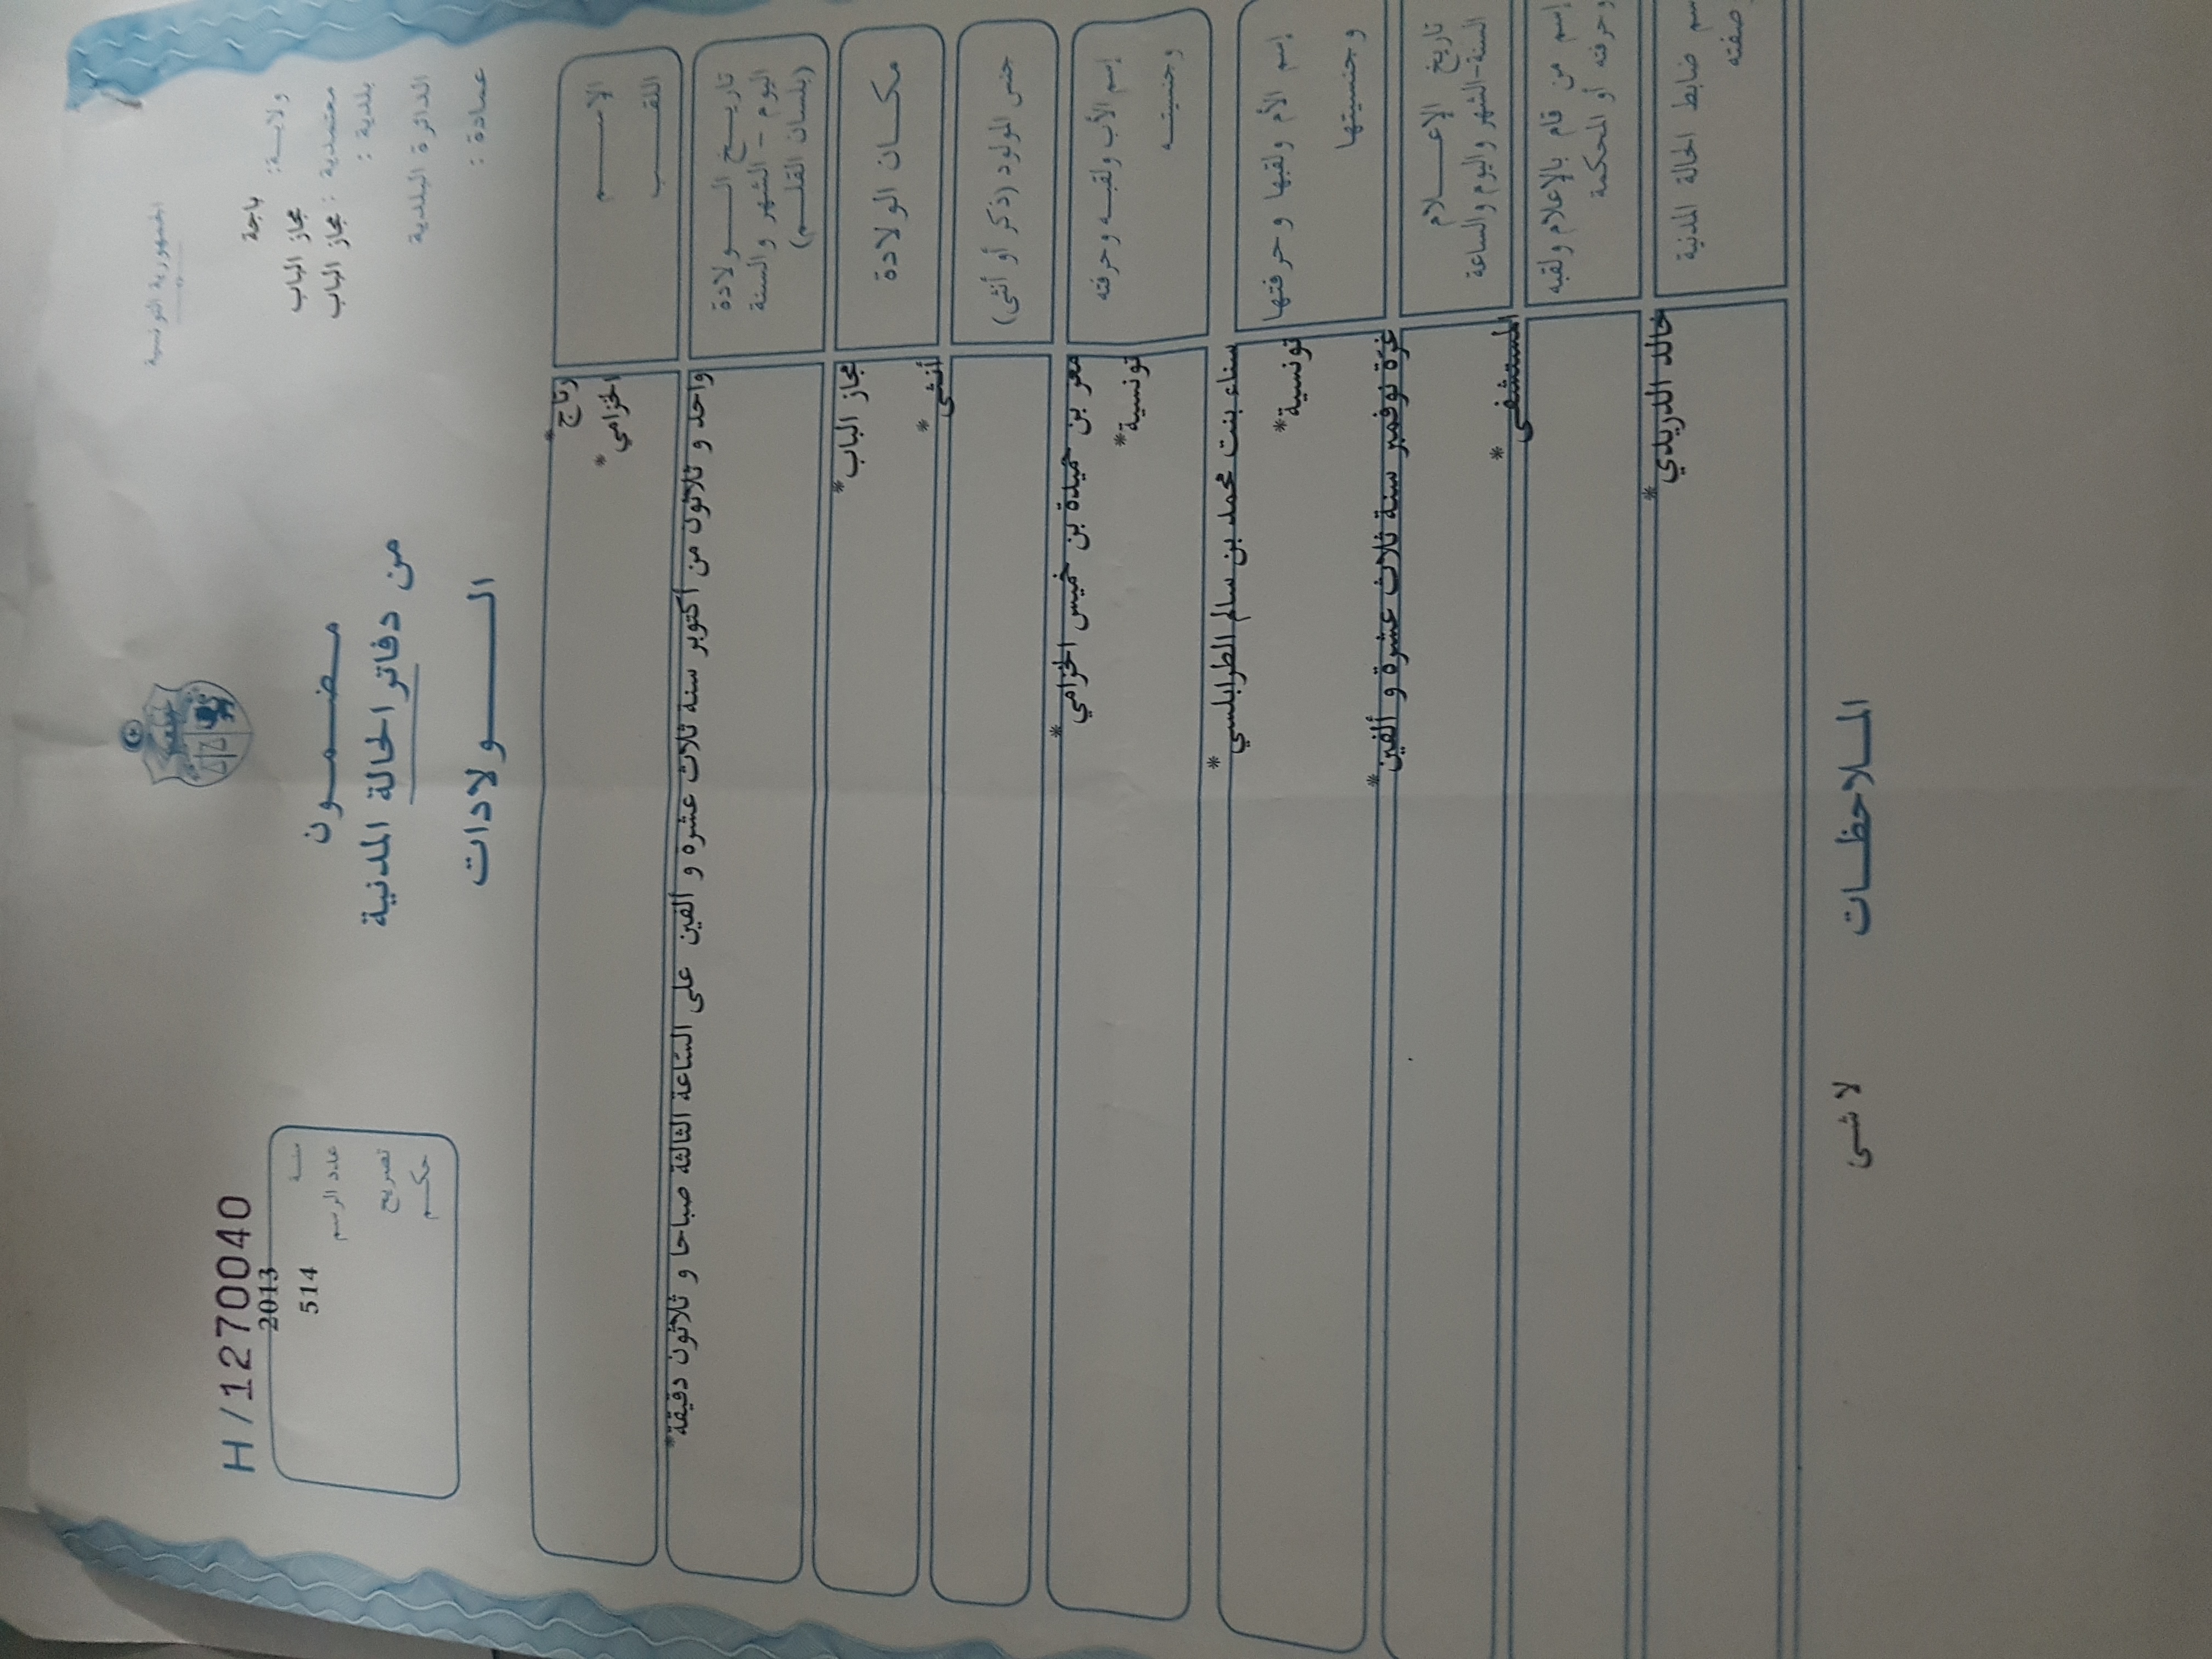 الجمهورية التونسية
ولاية: باجة
معتمدية : مجاز الباب
بلدية : مجاز الباب
الدائرة البلدية
عمادة :
مضمون
من دفاتر الحالة المدنية
الولادات
H/1270040
سنة 2013
عدد الرسم 514
تصريح
حكم
الإسم رتاج*
اللقب الخزامي*
تاريخ الولادة
اليوم - الشهر والسنة
(بلسان القلم)
واحد و ثلاثون من أكتوبر سنة ثلاث عشرة و ألفين على السّاعة الثالثة صباحا و ثلاثون دقيقة*
مكان الولادة مجاز الباب*
جنس المولود (ذكر أو أنثى) أنثى*
إسم الأب ولقبه وحرفته معز بن حميدة بن خميس الخزامي*
وجنسيته تونسية*
إسم الأم ولقبها وحرفتها سناء بنت محمد بن سالم الطرابلسي*
وجنسيتها تونسية*
تاريخ الإعلام
السنة-الشهر واليوم والساعة
غرّة نوفمبر سنة ثلاث عشرة و ألفين*
إسم من قام بالإعلام ولقبه المستشفى*
وحرفته أو المحكمة
إسم ضابط الحالة المدنية خالد الدريدي*
وصفته
الملاحظات
لا شئ